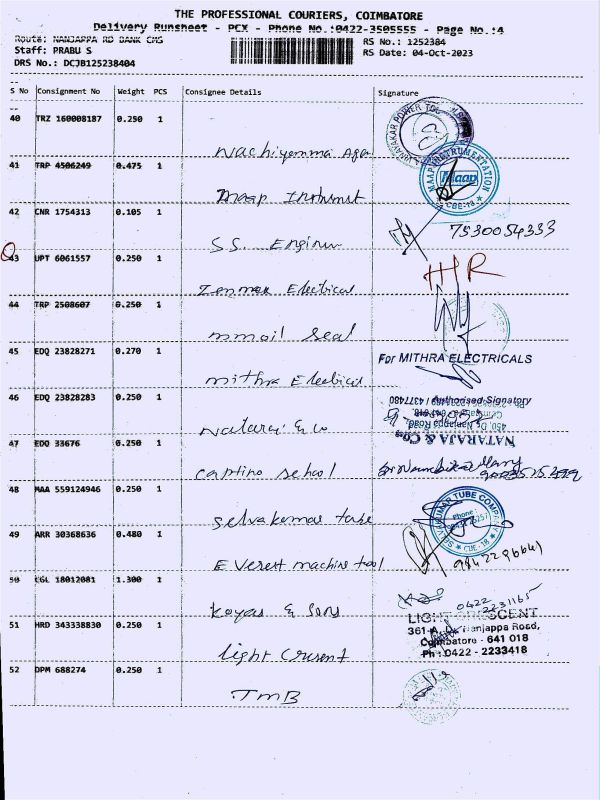 THE PROFESSIONAL COURIERS, COIMBATORE
Delivery Runsheet - PCX - Phone No.:0422-3505555 - Page No.:4
Route: NANJAPPA RD BANK CMS
RS No.: 1252384
Staff: PRABU S
RS Date: 04-Oct-2023
DRS No.: DCJB125238404
S No Consignment No Weight PCS Consignee Details Signature
40 TRZ 160008187 0.250 1
Nachiyamma Aga
41 TRP 4506249 0.475 1
MAAP INSTRUMENTATION
Maap
CBE-18
Maap Instrumet
42 CNR 1754313 0.105 1
7530054333
S.S. Engineer
43 UPT 6061557 0.250 1
HR
Zenmax Electrical
44 TRP 2508607 0.250 1
mmoil Seal
45 EDQ 23828271 0.270 1
For MITHRA ELECTRICALS
Mithra Electrical
46 EDQ 23828283 0.250 1
Authorised Signatory
450, Dr. Nanjappa Road
NATARAJA & Co.,
Nataraj & co
47 EDQ 33676 0.250 1
captino School
48 MAA 559124946 0.250 1
SELVAKUMAR TUBE COMPANY
Phone:
CBE-18
Selvakumar tube
49 ARR 30368636 0.480 1
Everest machine tool
50 CGL 18012081 1.300 1
0422
2231165
Koyas & Sons
LIGHT CRESCENT
51 HRD 343338830 0.250 1
361-A, Nanjappa Road,
Coimbatore - 641 018
Ph : 0422 - 2233418
light Cresent
52 DPM 688274 0.250 1
TMB